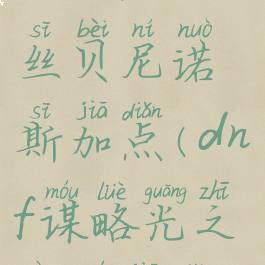 sī bèi ní nuò
丝贝尼诺
sī jiā diǎn
斯加点(dn
móu lüè guāng zhī
f谋略光之